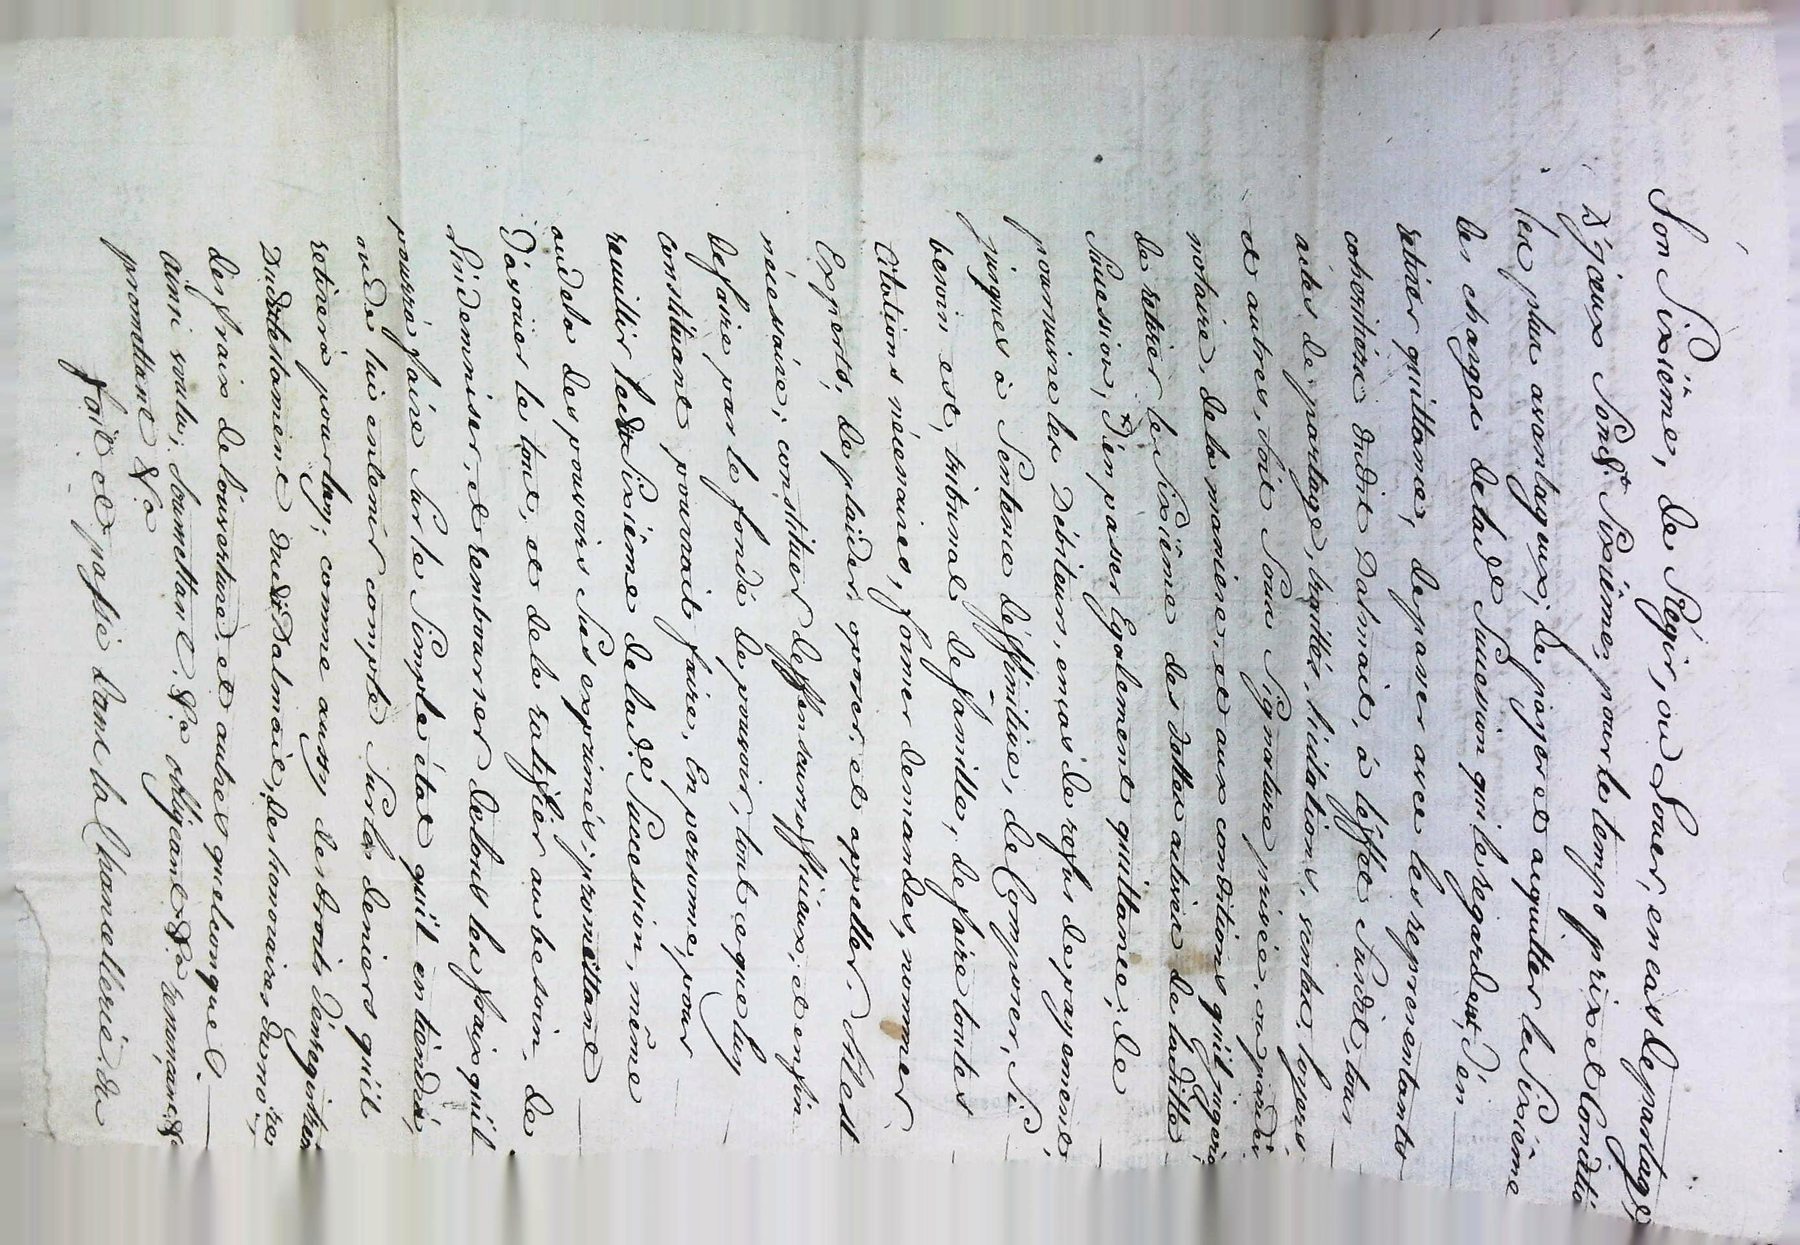 Son Sixième, de Régir, ou Louer, en cas de partage,
D'yceux Sond.t Sixième, pour le temps prix et Conditio
les plus avantageux; de payer et acquitter le Sixième
des charges de lad.e Succession qui le regardent, d'en
retirer quittance, de passer avec les representants
cohoritiers dudit Dalmait, à l'éffet Susdit, tous
actes de partage, traittés, licitations, ventes, loyers
et autres, soit Sous Signature privée, ou pardev.
notaire, de la maniere, et aux conditions qu'il jugera
de retirer le Sixième des dattes actives de laditte
Succession, d'en passer Egalement quittance, de
poursuivre les Débiteurs, en cas de refus de payement,
jusques à Sentence déffinitive, de Composer, Si
besoin est, tribunal de famille, de faire toutes
Citations nécessaires, former demandes, nommer
Experts, de plaider, oposer, et appeller, S'il est
nécessaire; constituer deffenseurs officieux, et enfin
de faire par le fondé de pouvoir, tout ce que luy
constituant pourrait faire, En personne, pour
receuillir led.t Sixième de lad.e Succession, même
audela des pouvoirs Sus exprimés; promettant
D'avoüer le tout, et de le ratifier au besoin, de
L'indemniser, et rembourser de tous les frais qu'il
pourra faire Sur le Simple état qu'il en tiendra,
ou de lui en tenir compte Sur les deniers qu'il
retirera pour luy; comme aussy des droits d'enregistrem
Dudit testament dud.t Dalmait, des honoraires du no.re
des frais de l'ouverture, et autres quelconques.
ainsi voulu; Soumettant &.a obligeant &.a renonçant &
promettant &.a
fait et passé dans la Chancellerie du